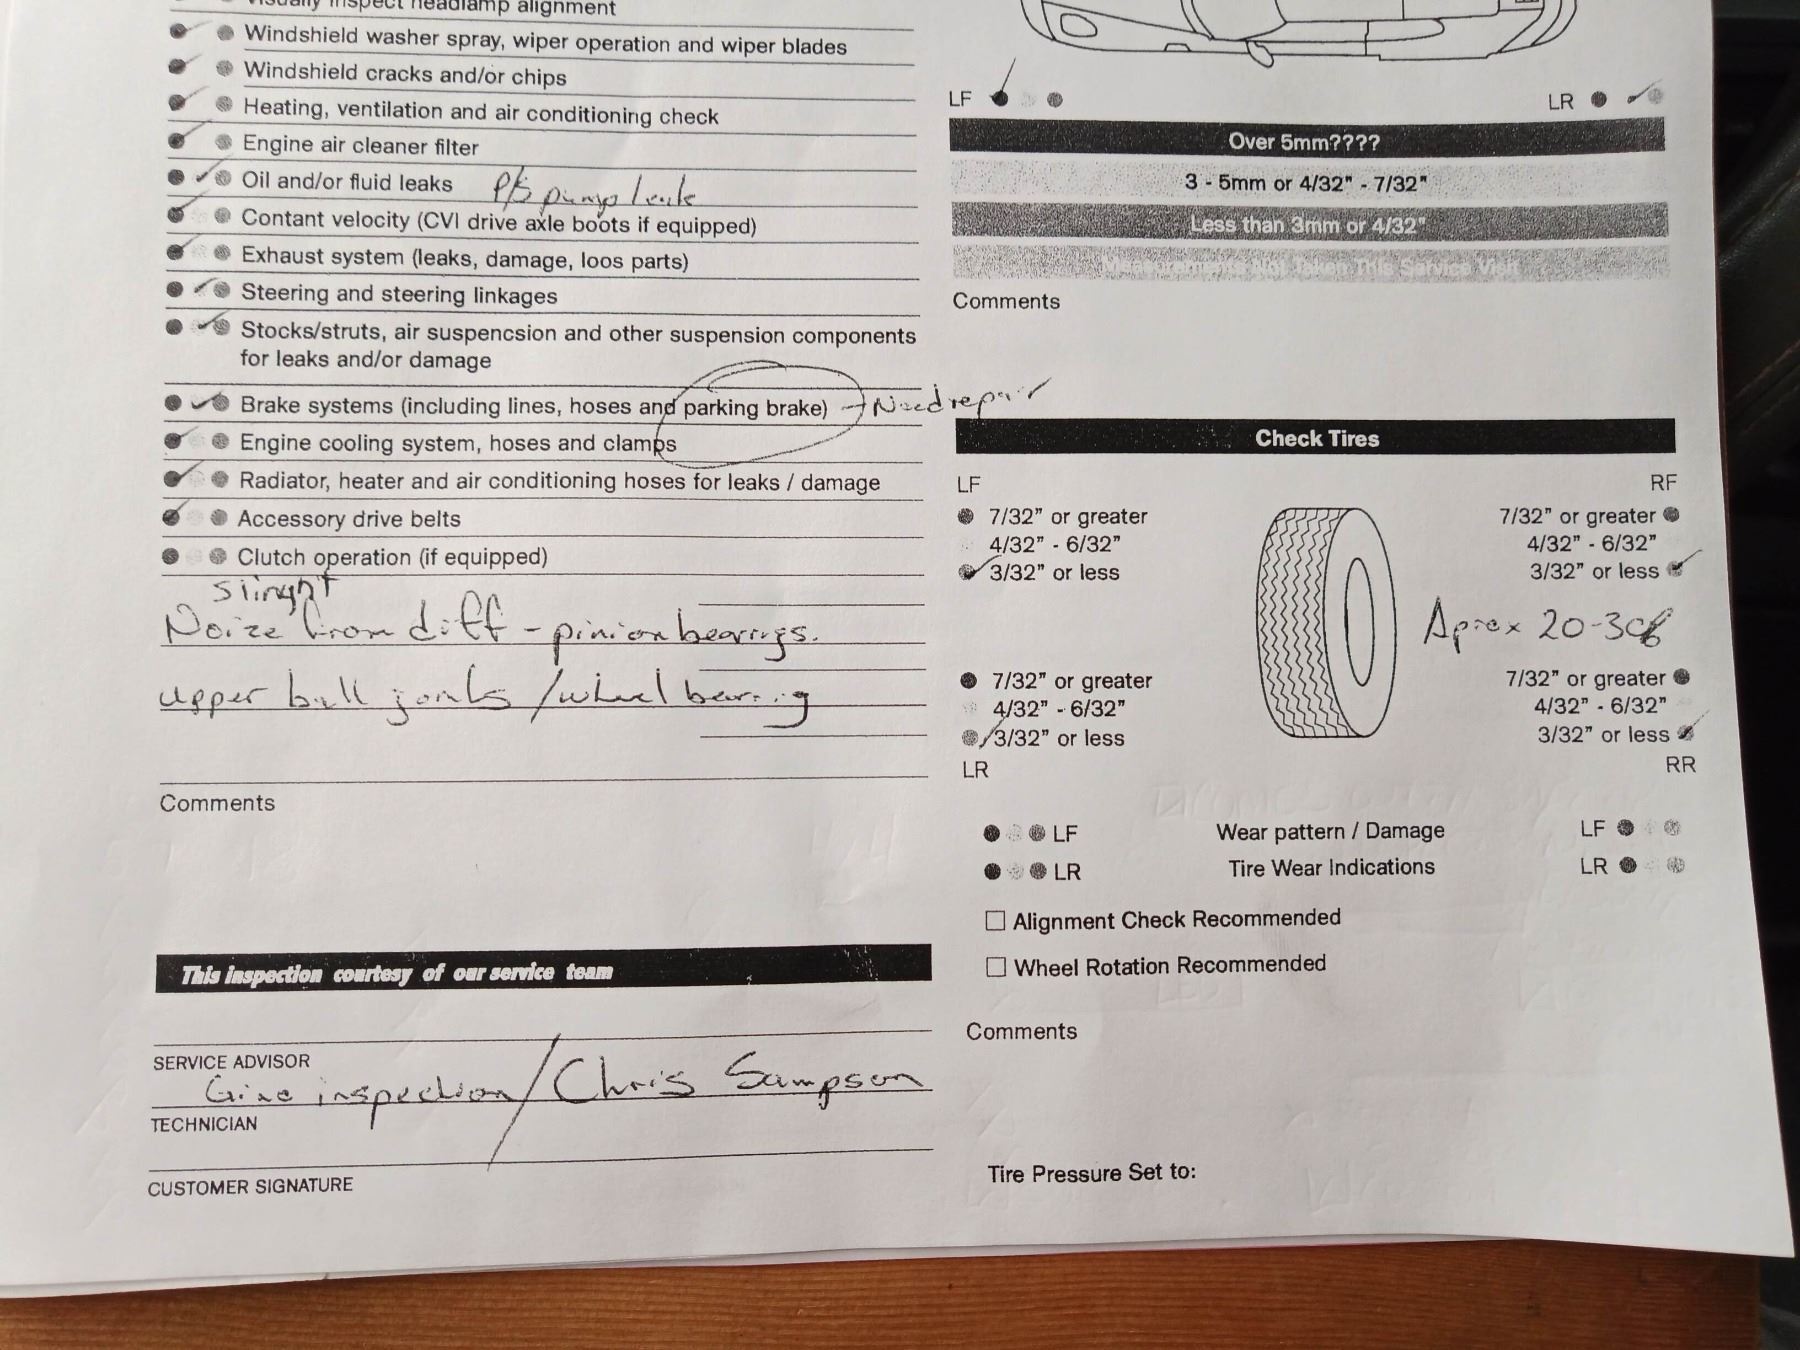 Visually inspect headlamp alignment
Windshield washer spray, wiper operation and wiper blades
Windshield cracks and/or chips
Heating, ventilation and air conditioning check
Engine air cleaner filter
Oil and/or fluid leaks P/S pump leak
Contant velocity (CVI drive axle boots if equipped)
Exhaust system (leaks, damage, loos parts)
Steering and steering linkages
Stocks/struts, air suspencsion and other suspension components
for leaks and/or damage
Brake systems (including lines, hoses and parking brake) - Need repair
Engine cooling system, hoses and clamps
Radiator, heater and air conditioning hoses for leaks / damage
Accessory drive belts
Clutch operation (if equipped)
slinght
Noize from diff - pinion bearings.
upper ball joints / wheel bearing
Comments
This inspection courtesy of our service team
SERVICE ADVISOR
inspection / Chris Sampson
TECHNICIAN
CUSTOMER SIGNATURE
LF LR
Over 5mm????
3 - 5mm or 4/32" - 7/32"
Less than 3mm or 4/32"
Measurements Not Taken This Service Visit
Comments
Check Tires
LF RF
7/32" or greater 7/32" or greater
4/32" - 6/32" 4/32" - 6/32"
3/32" or less 3/32" or less
Aprox 20-30%
7/32" or greater 7/32" or greater
4/32" - 6/32" 4/32" - 6/32"
3/32" or less 3/32" or less
LR RR
LF Wear pattern / Damage LF
LR Tire Wear Indications LR
Alignment Check Recommended
Wheel Rotation Recommended
Comments
Tire Pressure Set to: